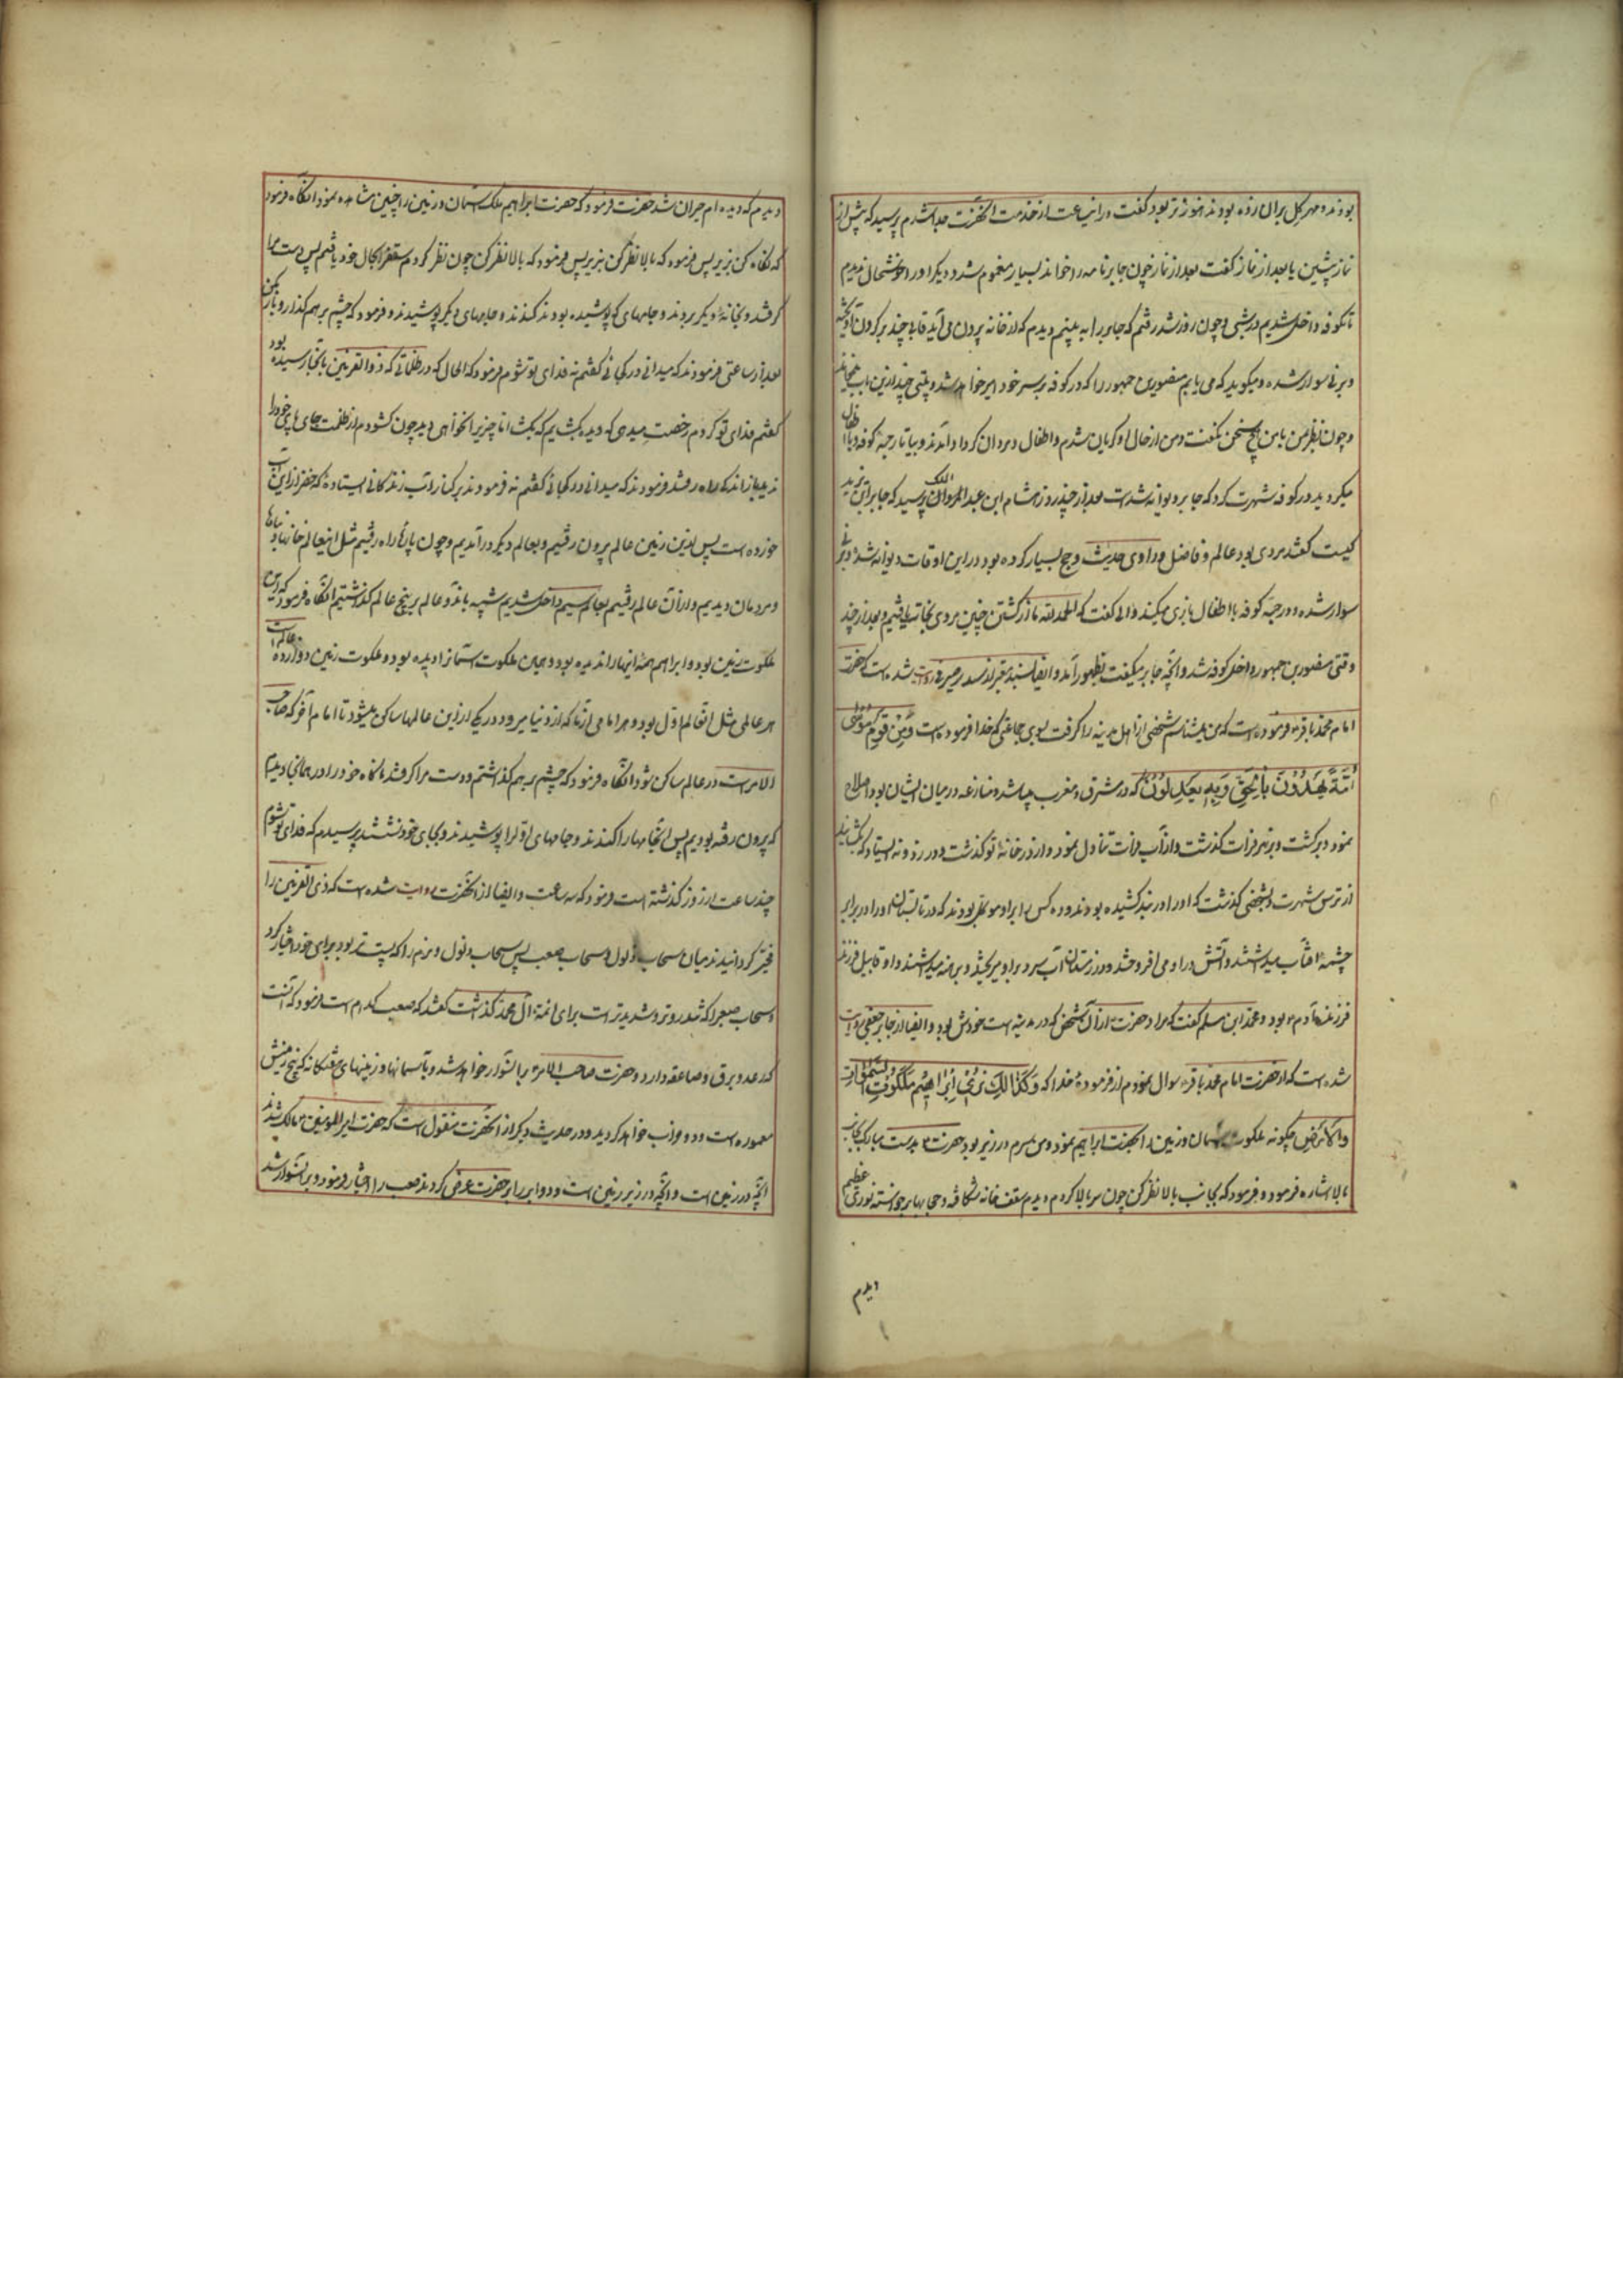 بودند و مهر کل بران زده بودند هنوز تر بود گفت در این ساعت از خدمت آنحضرت جدا شدم پرسید که پیش از
نماز پیشین یا بعد از نماز گفت بعد از نماز چون جابر نامه را خواند بسیار مغموم شد و دیگر او را خوشحال ندیدم
تا بکوفه داخل شدیم در شبی و چون روز شد رفتم که جابر را به بینم دیدم که از خانه بیرون می آید قابی چند بر گردن آویخته
و بر نی سوار شده و میگوید که می یابم منصور بن جمهور را که در کوفه بر سر خود امیر خواهد شد و بیتی چند ازین باب میخواند
و چون نظر من با من هیچ سخن نگفت و من از حال او گریان شدم و اطفال و مردان گرد او آمدند و بیا تا رحبه کوفه با اطفال
میگردید در کوفه شهرت کرد که جابر دیوانه شدست بعد از چند روز هشام ابن عبد الملک مروان پرسید که جابر ابن یزید
کیست گفتند مردی بود عالم و فاضل و راوی حدیث و حج بسیار کرده بود در این اوقات دیوانه شده و بر نی
سوار شده و در رحبه کوفه با اطفال بازی میکند والی گفت که الحمد لله ما از کشتن چنین مردی نجات یافتیم و بعد از چند
وقتی منصور بن جمهور داخل کوفه شد و آنچه جابر میگفت بظهور آمد و ایضا بسند معتبر از سدیر صیرفی روایت شده است که حضرت
امام محمد باقر فرموده است که من میشناسم شخصی از اهل مدینه را که رفت بسوی جماعتی که خدا فرموده است وَمِنْ قَوْمِ مُوسٰی
أُمَّةٌ یَهْدُوْنَ بِالْحَقِّ وَبِهِ یَعْدِلُوْنَ که در مشرق و مغرب میباشد و منازعه در میان ایشان بود اصلاح
نمود و برگشت و بر نهر فرات گذشت و از آب فرات تناول نمود و از در خانه تو گذشت و در زد و نه ایستاد که بکشایند
از ترس شهرت و بشخصی گذشت که او را در بند کشیده بودند و ده کس بر او موکل بودند که در تابستان او را در برابر
چشمه آفتاب میداشتند و آتش در او می افروختند و در زمستان آب سرد بر او میریختند و برهنه میداشتند و او قابیل فرزند
فرزند آدم بود و محمد ابن مسلم گفت که مراد حضرت از آن شخص که در مدینه است خودش بود و ایضا از جابر جعفی روایت
شده است که از حضرت امام محمد باقر سوال نمودم از فرموده خدا که وَکَذٰالِكَ نُرِیْ اِبْرَاهِیْمَ مَلَکُوْتَ السَّمٰوَاتِ
وَالْاَرْضِ چگونه ملکوت آسمان و زمین را بحضرت ابراهیم نمود و من سرم در زیر بود حضرت بدست مبارک بجانب
بالا اشاره فرمود و فرمود که بجانب بالا نظر کن چون سر بالا کردم دیدم سقف خانه شکافه و حجابها برخواسته نوری عظیم
دیدم
دیدم که دیده ام حیران شد حضرت فرمود که حضرت ابراهیم ملک آسمان و زمین را چنین مشاهده نمود آنگاه فرمود
که نگاه کن بزیر پس فرمود که بالا نظر کن بزیر پس فرمود که بالا نظر کن چون نظر کردم سقف را بحال خود یافتم پس دست مرا
گرفتند و بخانه دیگر بردند و جامهای که پوشیده بودند کندند و جامهای دیگر پوشیدند و فرمود که چشم بر هم گذار و باز مکن
بعد از ساعتی فرمودند که میدانی در کجائی گفتم نه فدای تو شوم فرمود که الحال که در ظلماتی که ذوالقرنین بآنجا رسیده بود
گفتم فدای تو گردم رخصت میدهی که دیده بگشایم که بگشا اما چیزی را نخواهی دید چون گشودم از ظلمت جای پای خود را
ندیدم باز اندک راه رفتند فرمودند که میدانی در کجائی گفتم نه فرمودند بر کنار آب زندگانی ایستاده که خضر از این آب
خورده است پس ازین زمین عالم بیرون رفتیم و بعالم دیگر درآمدیم و چون پاره راه رفتیم مثل این عالم خانها و بناها
و مردمان دیدیم و از آن عالم رفتیم بعالم سیم داخل شدیم شبیه باندو عالم بر پنج عالم گذشتیم آنگاه فرمود که این
ملکوت زمین بود و ابراهیم همه اینها را ندیده بود و همین ملکوت آسمانرا دیده بود و ملکوت زمین دوازده عالم است
هر عالمی مثل این عالم اول بود و هر امامی از ما که از دنیا میرود در یکی از این عالمها ساکن میشود تا امام آخر که صاحب
الامر است در عالم ساکن شود آنگاه فرمود که چشم بر هم گذاشتم و دست مرا گرفتند ناگاه خود را در همانجا دیدیم
که بیرون رفته بودیم پس آنجامها را کندند و جامهای اول را پوشیدند و بجای خود نشستند پرسیدم که فدای تو شوم
چند ساعت از روز گذشته است فرمود که سه ساعت و ایضا از آنحضرت روایت شده است که ذی القرنین را
مخیر گردانیدند میان سحاب ذلول و سحاب صعب پس سحاب ذلول و نرم را که پست تر بود برای خود اختیار کرد
و سحاب صعب را که تندروتر و شدیدتر است برای ائمه آل محمد گذاشت گفتند که صعب کدام است فرمود که آنست
که رعد و برق و صاعقه دارد و حضرت صاحب الامر بر ان سوار خواهد شد و بآسمانها و زمینهای هفتگانه که پنج زمینش
معموره است و دو خراب خواهد گردید و در حدیث دیگر از آنحضرت منقول است که حضرت امیر المومنین مالک شد
آنچه در زمین است و آنچه در زیر زمین است و دو ابر را بر حضرت عرض کردند صعب را اختیار فرمود و بر ان سوار شد